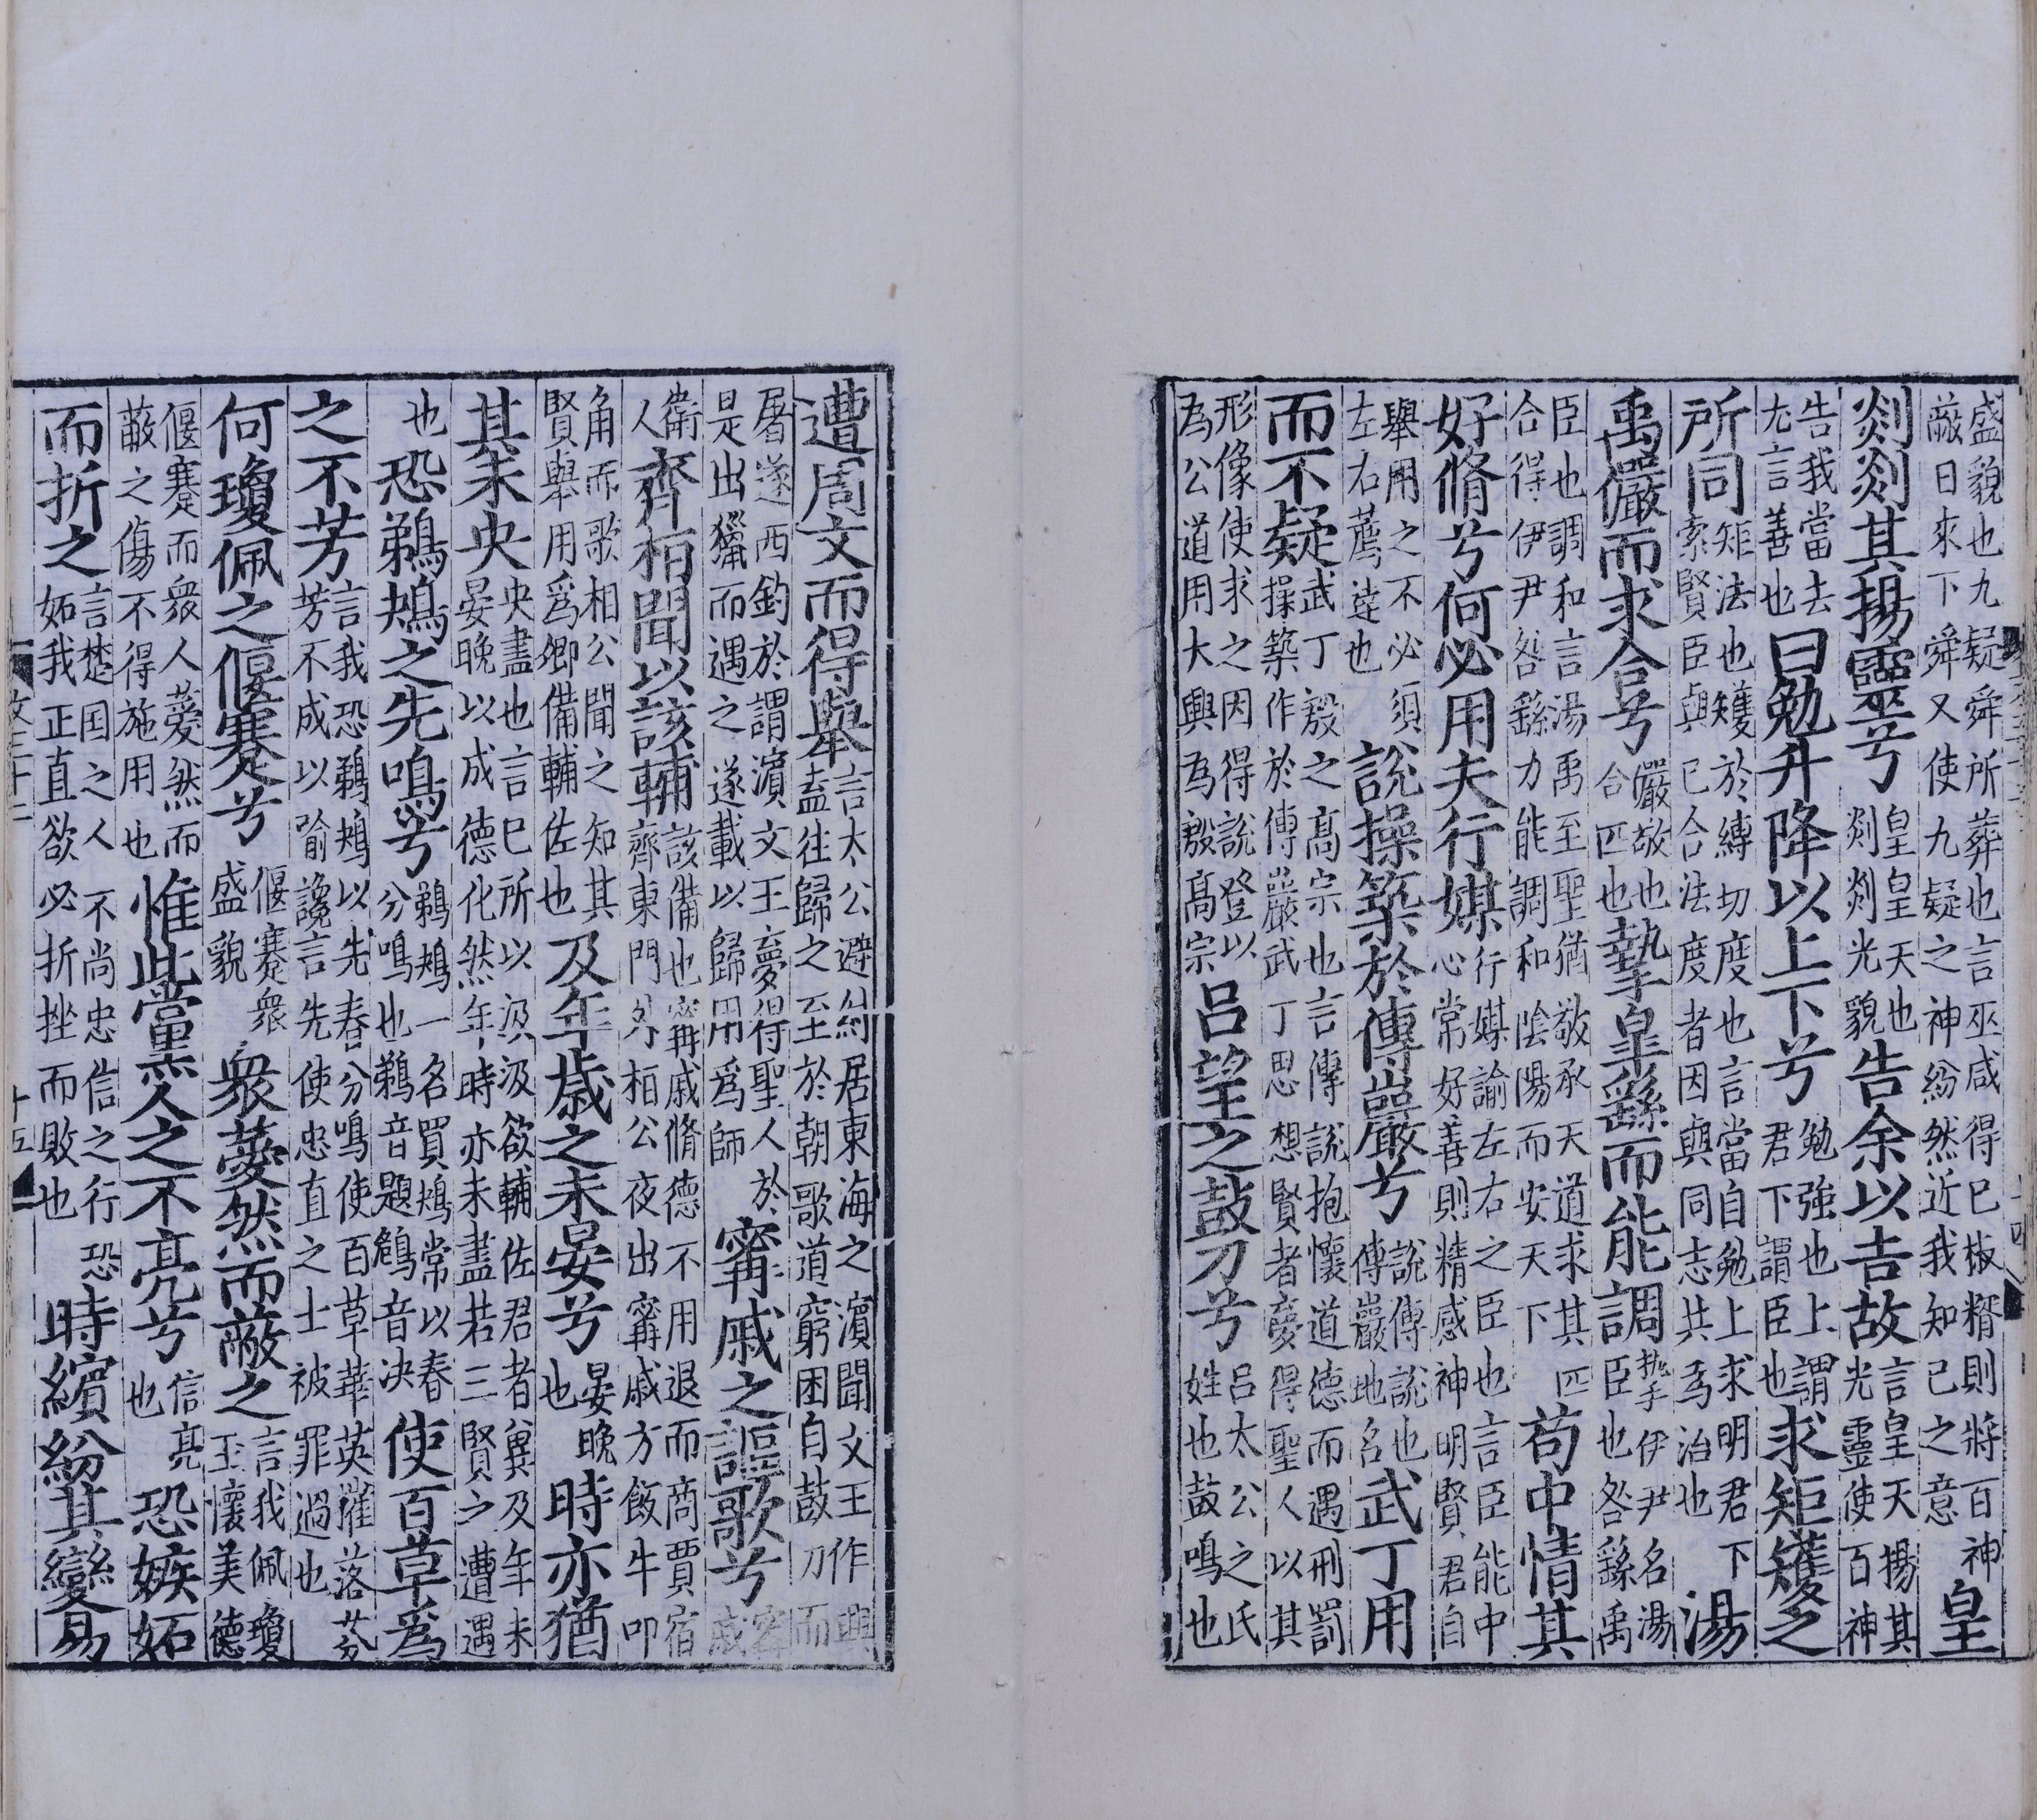 盛貌也九疑舜所葬也言巫咸得已椒糈則將百神蔽日來下舜又使九疑之神紛然近我知己之意皇
剡剡其揚靈兮皇皇天也剡剡光貌告余以吉故言皇天揚其光靈使百神
告我當去尤言善也曰勉升降以上下兮勉強也上謂君下謂臣也求矩矱之
所同矩法也矱於縛切度也言當自勉上求明君下索賢臣與已合法度者因與同志共爲治也湯
禹儼而求合兮儼敬也合匹也摯皋繇而能調摯伊尹名湯臣也咎繇禹
臣也調和言湯禹至聖猶敬承天道求其匹合得伊尹咎繇力能調和陰陽而安天下苟中情其
好脩兮何必用夫行媒行媒諭左右之臣也言臣能中心常好善則精感神明賢君自
舉用之不必須左右薦達也說操築於傅巖兮說傅說也傅巖地名武丁用
而不疑武丁殷之高宗也言傅說抱懷道德而遇刑罰操築作於傅巖武丁思想賢者夢得聖人以其
形像使求之因得說登以為公道用大興為殷高宗呂望之鼓刀兮呂太公之氏姓也鼓鳴也
遭周文而得舉言太公避紂居東海之濱聞文王作興盍往歸之至於朝歌道窮困自鼓刀而
屠遂西釣於謂濱文王夢得聖人於是出獵而遇之遂載以歸用爲師甯戚之謳歌兮甯戚
衛人齊桓聞以該輔該備也甯戚脩德不用退而商賈宿齊東門外桓公夜出甯戚方飯牛叩
角而歌桓公聞之知其賢舉用爲卿備輔佐也及年歲之未晏兮晏晚也時亦猶
其未央央盡也言已所以汲汲欲輔佐君者冀及年未晏晚以成德化然年時亦未盡若三賢之遭遇
也恐鵜鴂之先鳴兮鵜鴂一名買鴂常以春分鳴也鵜音題鴂音決使百草爲
之不芳言我恐鵜鴂以先春分鳴使百草華英摧落芬芳不成以喻讒言先使忠直之士被罪過也
何瓊佩之偃蹇兮偃蹇衆盛貌衆薆然而蔽之言我佩瓊玉懷美德
偃蹇而衆人薆然而蔽之傷不得施用也惟此黨人之不亮兮信亮也恐嫉妬
而折之言楚国之人不尚忠信之行恐妬我正直欲必折挫而敗也時繽紛其變易
文三十二
十五